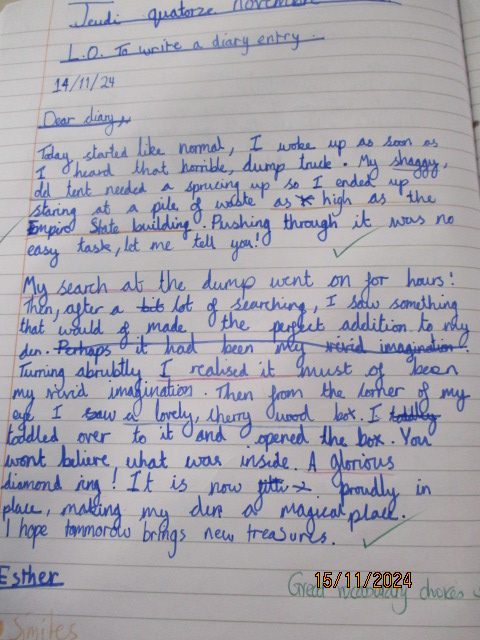 Jeudi quatorze novembre
L.O. To write a diary entry.
14/11/24
Dear diary,
Today started like normal, I woke up as soon as
I heard that horrible, dump truck. My shaggy,
old tent needed a sprucing up so I ended up
staring at a pile of waste as high as the
Empire State building. Pushing through it was no
easy task, let me tell you!
My search at the dump went on for hours!
Then, after a bit lot of searching, I saw something
that would of made the perfect addition to my
den. Perhaps it had been my vivid imagination.
Turning abrubtly I realised it must of been
my vivid imagination. Then from the corner of my
eye I saw a lovely, cherry wood box. I toddly
toddled over to it and opened the box. You
wont believe what was inside. A glorious
diamond ring! It is now proudly in
place, making my den a magical place.
I hope tommorow brings new treasures.
Esther
15/11/2024
Great vocabulary choices
Similes